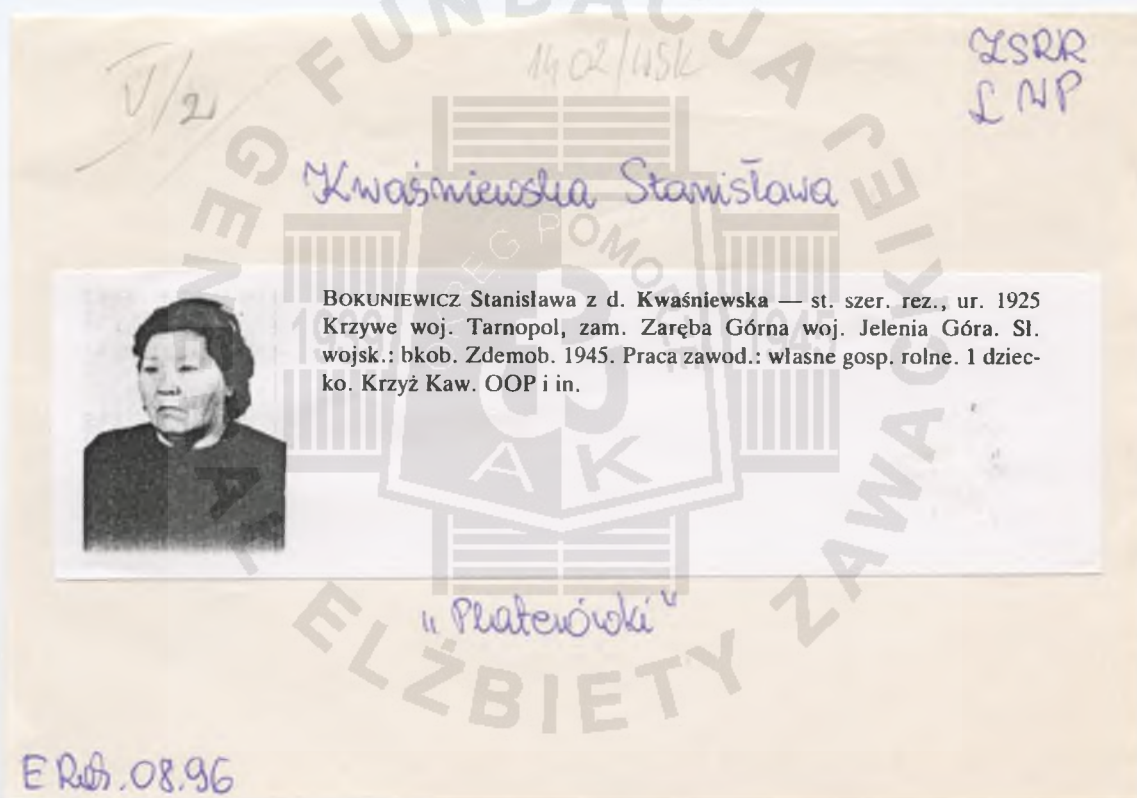 V/2
1402/WSK
ZSRR
LWP
Kwaśniewska Stanisława
BOKUNIEWICZ Stanisława z d. Kwaśniewska — st. szer. rez., ur. 1925
Krzywe woj. Tarnopol, zam. Zaręba Górna woj. Jelenia Góra. Sł.
wojsk.: bkob. Zdemob. 1945. Praca zawod.: własne gosp. rolne. 1 dziec-
ko. Krzyż Kaw. OOP i in.
„Platerówki"
08.96
FUNDACJA GENERAŁ ELŻBIETY ZAWACKIEJ
OKRĘG POMORSKI
1939
1945
AK